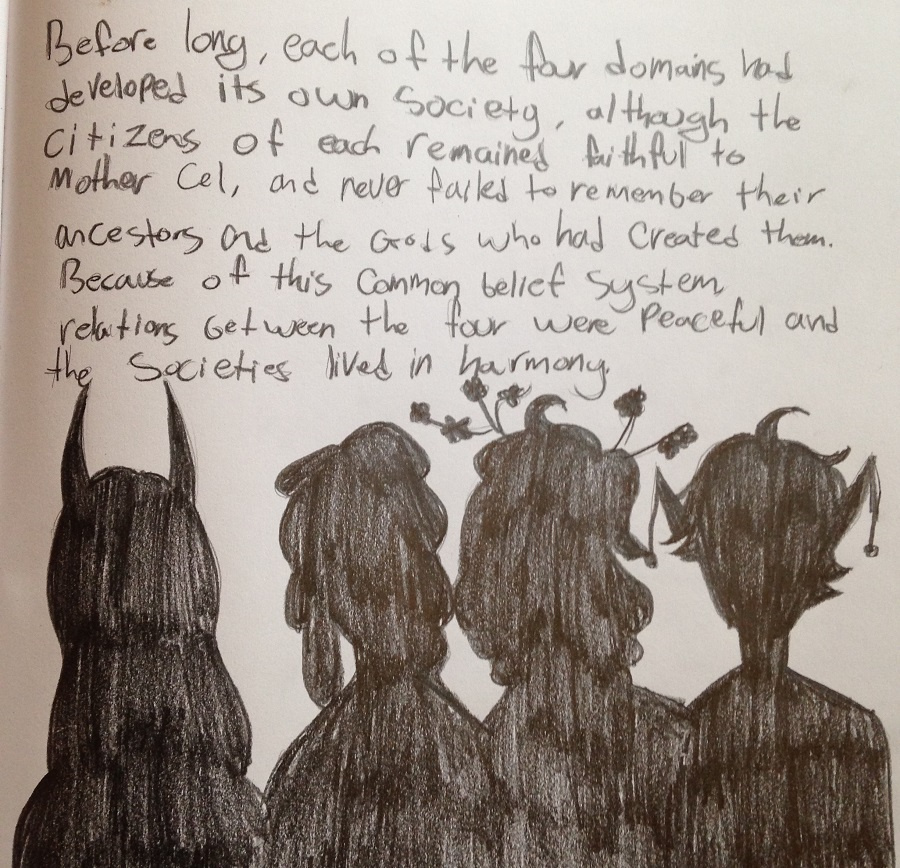 Before long, each of the four domains had
developed its own Society, although the
Citizens of each remained faithful to
Mother Cel, and never failed to remember their
ancestors and the Gods who had Created them.
Because of this Common belief System
relations between the four were Peaceful and
the Societies lived in harmony.